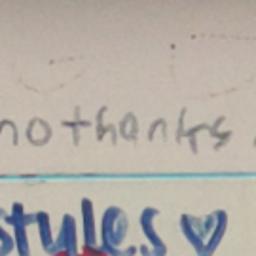 no thanks.
styles ♡